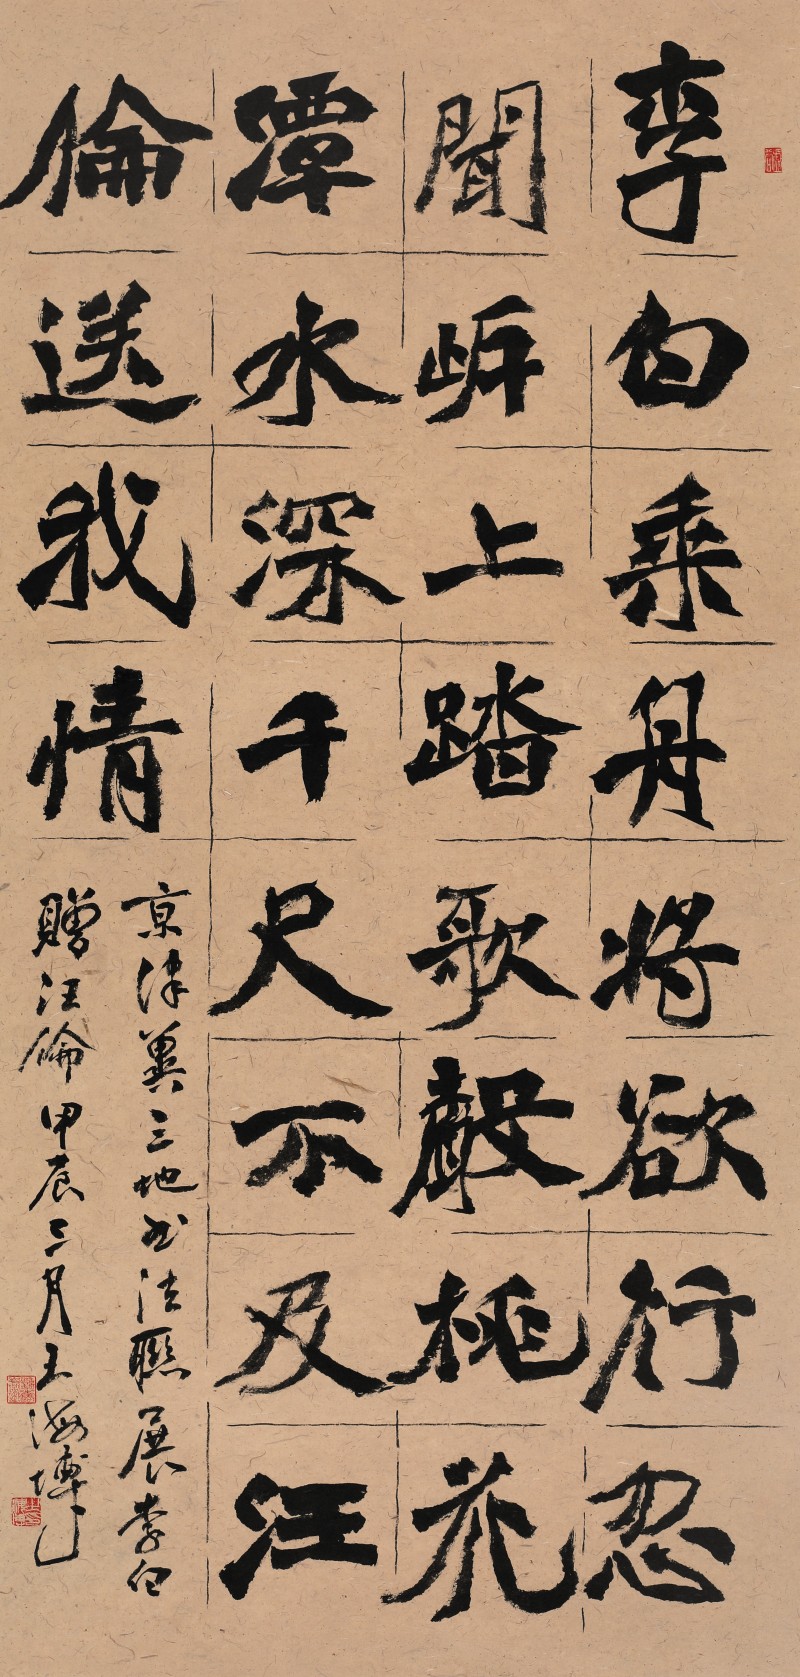 李白乘舟將欲行忽
聞岸上踏歌聲桃花
潭水深千尺不及汪
倫送我情
京津冀三地书法聯展李白
贈汪倫甲辰三月王海博